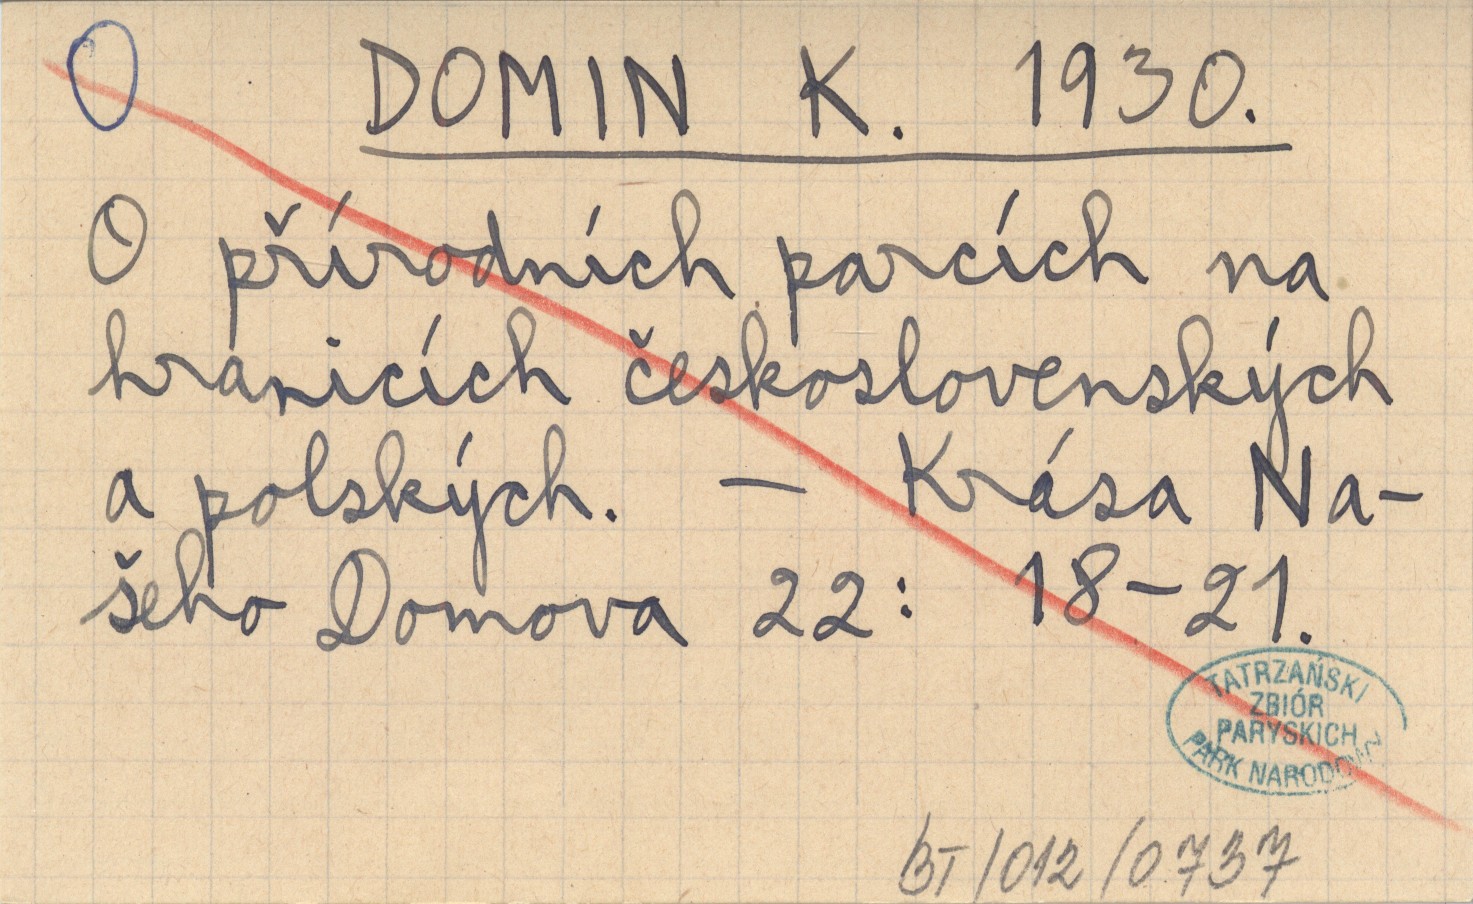 O DOMIN K. 1930.
O přírodních parcích na
hranicích československých
a polských. — Krása Na-
šeho Domova 22: 18-21.
TATRZAŃSKI
ZBIÓR
PARYSKICH
PARK NARODOWY
BT/012/0737